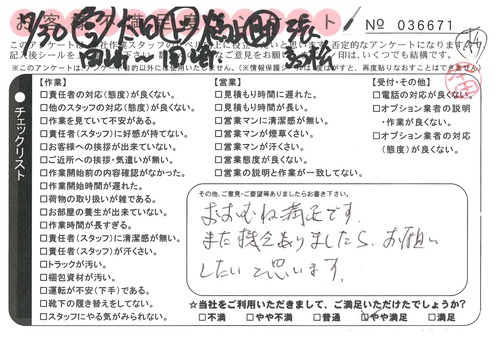 No 036671
チェックリスト
【作業】
□責任者の対応(態度)が良くない。
□他のスタッフの対応(態度)が良くない。
□作業を見ていて不安がある。
□責任者(スタッフ)に好感が持てない。
□お客様への挨拶が出来ていない。
□ご近所への挨拶・気遣いが無い。
□作業開始前の内容確認がなかった。
□作業開始時間が遅れた。
□荷物の取り扱いが雑である。
□お部屋の養生が出来ていない。
□作業時間が長すぎる。
□責任者(スタッフ)に清潔感が無い。
□責任者(スタッフ)が汗くさい。
□トラックが汚い。
□梱包資材が汚い。
□運転が不安(下手)である。
□靴下の履き替えをしてない。
□スタッフにやる気がみられない。
【営業】
□見積もり時間に遅れた。
□見積もり時間が長い。
□営業マンに清潔感が無い。
□営業マンが煙草くさい。
□営業マンが汗くさい。
□営業態度が良くない。
□営業の説明と作業が一致してない。
【受付・その他】
□電話の対応が良くない。
□オプション業者の説明・作業が良くない。
□オプション業者の対応(態度)が良くない。
その他、ご意見・ご要望等ありましたらお書き下さい。
おおむね満足です。
また機会ありましたら、お願い
したいと思います。
☆当社をご利用いただきまして、ご満足いただけたでしょうか?
□不満 □やや不満 □普通 □やや満足 □満足